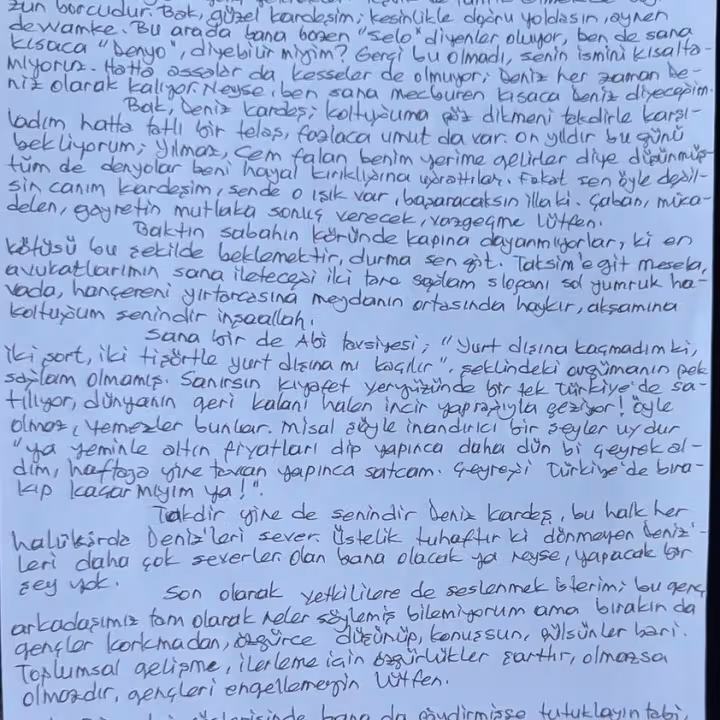 zun borcudur. Bak, güzel kardeşim; kesinlikle doğru yoldasın, aynen
dewamke. Bu arada bana bazen "Selo" diyenler oluyor, ben de sana
kısaca "Denyo", diyebilir miyim? Gerçi bu olmadı, senin ismini kısalta-
mıyoruz. Hatta assalar da, kesseler de olmuyor; Deniz her zaman De-
niz olarak kalıyor. Neyse, ben sana mecburen kısaca Deniz diyeceğim.
Bak, Deniz kardeş; koltuğuma göz dikmeni takdirle karşı-
ladım, hatta tatlı bir telaş, fazlaca umut da var. On yıldır bu günü
bekliyorum; Yılmaz, Cem falan benim yerime gelirler diye düşünmüş-
tüm de denyolar beni hayal kırıklığına uğrattılar. Fakat sen öyle değil-
sin canım kardeşim, sende o ışık var, başaracaksın illaki. Çaban, müca-
delen, gayretin mutlaka sonuç verecek, vazgeçme lütfen.
Baktın sabahın köründe kapına dayanmıyorlar, ki en
kötüsü bu şekilde beklemektir, durma sen git. Taksim'e git mesela,
avukatlarımın sana ileteceği iki tane sağlam sloganı sol yumruk ha-
vada, hançereni yırtarcasına meydanın ortasında haykır, akşamına
koltuğum senindir inşaallah.
Sana bir de Abi tavsiyesi; "Yurt dışına kaçmadım ki,
iki şort, iki tişörtle yurt dışına mı kaçılır". şeklindeki argümanın pek
sağlam olmamış. Sanırsın kıyafet yeryüzünde bir tek Türkiye'de sa-
tılıyor, dünyanın geri kalanı halen incir yaprağıyla geziyor! öyle
olmaz, yemezler bunlar. Misal şöyle inandırıcı bir şeyler uydur
"ya yeminle altın fiyatları dip yapınca daha dün bi çeyrek al-
dım, haftaya yine tavan yapınca satcam. Çeyreği Türkiye'de bıra-
kıp kaçar mıyım ya!".
Takdir yine de senindir Deniz kardeş, bu halk her
halükârda Deniz'leri sever. Üstelik tuhaftır ki dönmeyen Deniz'-
leri daha çok severler. Olan bana olacak ya neyse, yapacak bir
şey yok.
Son olarak yetkililere de seslenmek isterim; bu genç
arkadaşımız tam olarak neler söylemiş bilemiyorum ama bırakın da
gençler korkmadan, özgürce düşünüp, konuşsun, gülsünler bari.
Toplumsal gelişme, ilerleme için özgürlükler şarttır, olmazsa
olmazdır, gençleri engellemeyin lütfen.
bana da giydirmişse tutuklayın tabi,